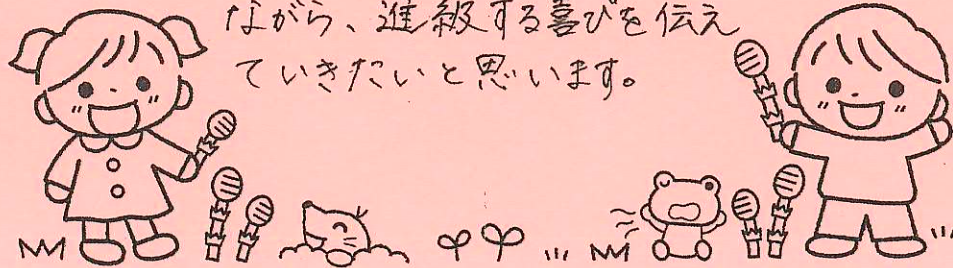 ながら、進級する喜びを伝え
ていきたいと思います。